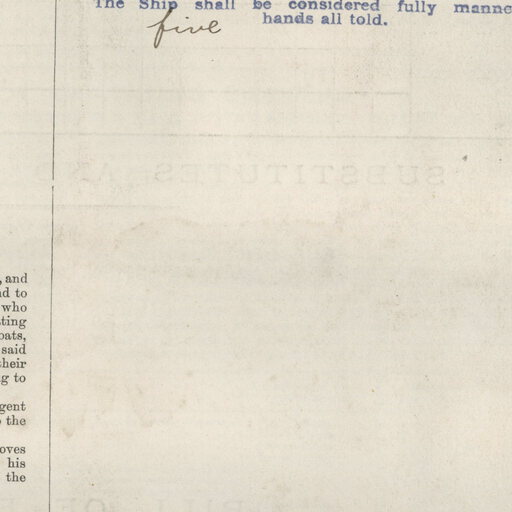 The Ship shall be considered fully manne
five hands all told.
, and
d to
who
ting
oats,
said
their
g to
gent
the
oves
his
the
SUBSTITUTES AND